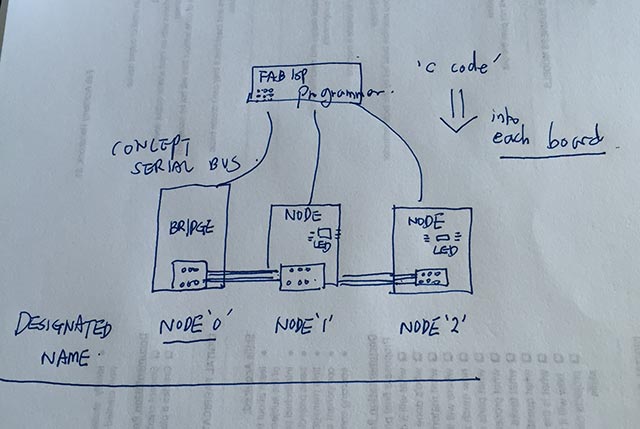 FAB ISP
Programmer.
'C code'
into
each board
CONCEPT
SERIAL BUS.
BRIDGE
NODE
LED
NODE
LED
DESIGNATED
NAME.
NODE '0'
NODE '1'
NODE '2'